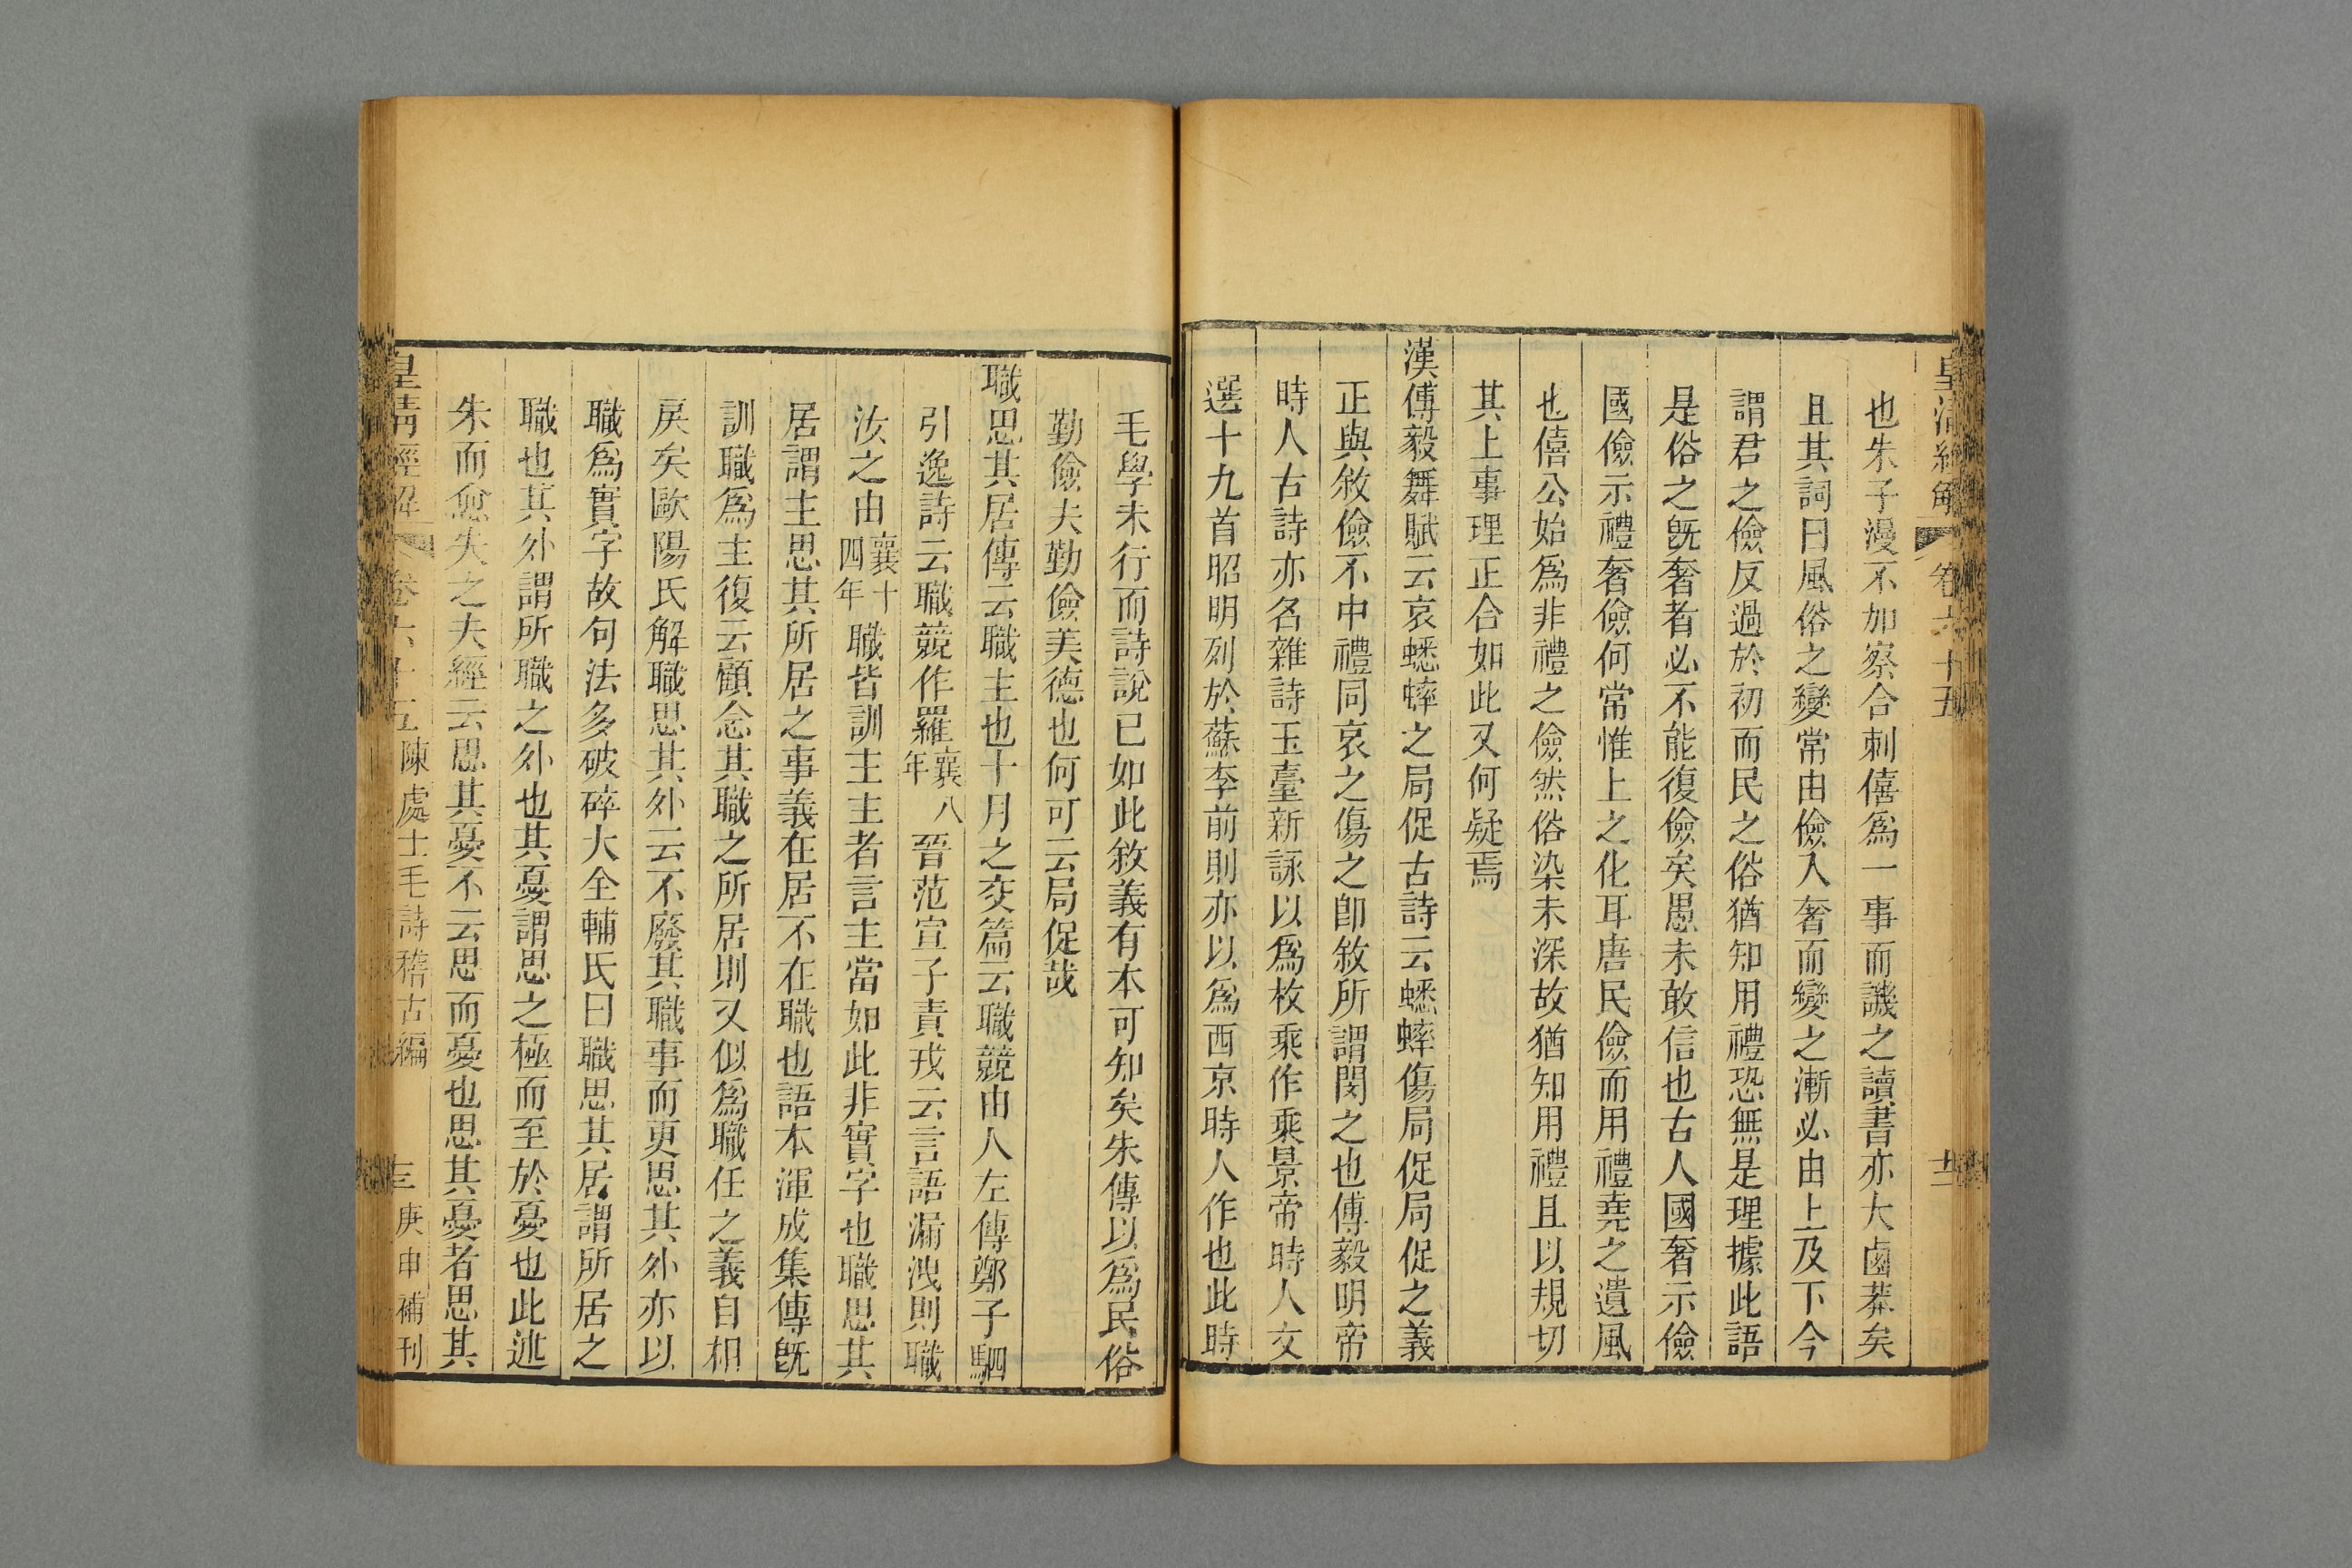 皇清經解
卷六十五
也朱子漫不加察合刺僖爲一事而譏之讀書亦大鹵莽矣
且其詞曰風俗之變常由儉入奢而變之漸必由上及下今
謂君之儉反過於初而民之俗猶知用禮恐無是理據此語
是俗之旣奢者必不能復儉矣愚未敢信也古人國奢示儉
國儉示禮奢儉何常惟上之化耳唐民儉而用禮堯之遺風
也僖公始爲非禮之儉然俗染未深故猶知用禮且以規切
其上事理正合如此又何疑焉
漢傅毅舞賦云哀蟋蟀之局促古詩云蟋蟀傷局促局促之義
正與敘儉不中禮同哀之傷之卽敘所謂閔之也傅毅明帝
時人古詩亦名雜詩玉臺新詠以爲枚乘作乘景帝時人文
選十九首昭明列於蘇李前則亦以爲西京時人作也此時
毛學未行而詩說已如此敘義有本可知矣朱傳以爲民俗
勤儉夫勤儉美德也何可云局促哉
職思其居傳云職主也十月之交篇云職競由人左傳鄭子駟
引逸詩云職競作羅襄八年晉范宣子責戎云言語漏洩則職
汝之由襄十四年職皆訓主主者言主當如此非實字也職思其
居謂主思其所居之事義在居不在職也語本渾成集傳旣
訓職爲主復云顧念其職之所居則又似爲職任之義自相
戾矣歐陽氏解職思其外云不廢其職事而更思其外亦以
職爲實字故句法多破碎大全輔氏曰職思其居謂所居之
職也其外謂所職之外也其憂謂思之極而至於憂也此逃
朱而愈失之夫經云思其憂不云思而憂也思其憂者思其
皇清經解
卷六十五陳處士毛詩稽古編
三
庚申補刊